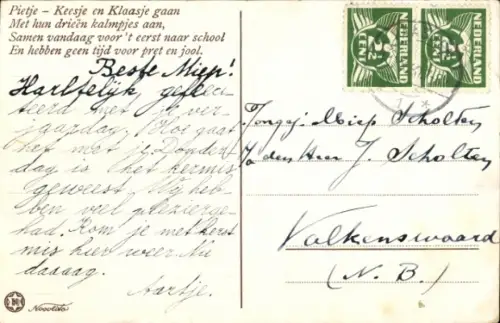 Pietje - Keesje en Klaasje gaan
Met hun drieën kalmpjes aan,
Samen vandaag voor 't eerst naar school
En hebben geen tijd voor pret en jool.
Beste Miep!
Hartelijk gefeli
teerd met je ver-
jaardag. Hoe gaat
het met je. Donder
dag is het kermis
geweest. Wij heb-
ben veel plezier ge-
had. Kom je met kerst
mis hier weer. Nu
daaaag.
Aartje.
NEDERLAND
CENT
NEDERLAND
CENT
Jongej: Miep Scholten
p/a den Heer J. Scholten
Valkenswaard
(N. B.)
Novolito